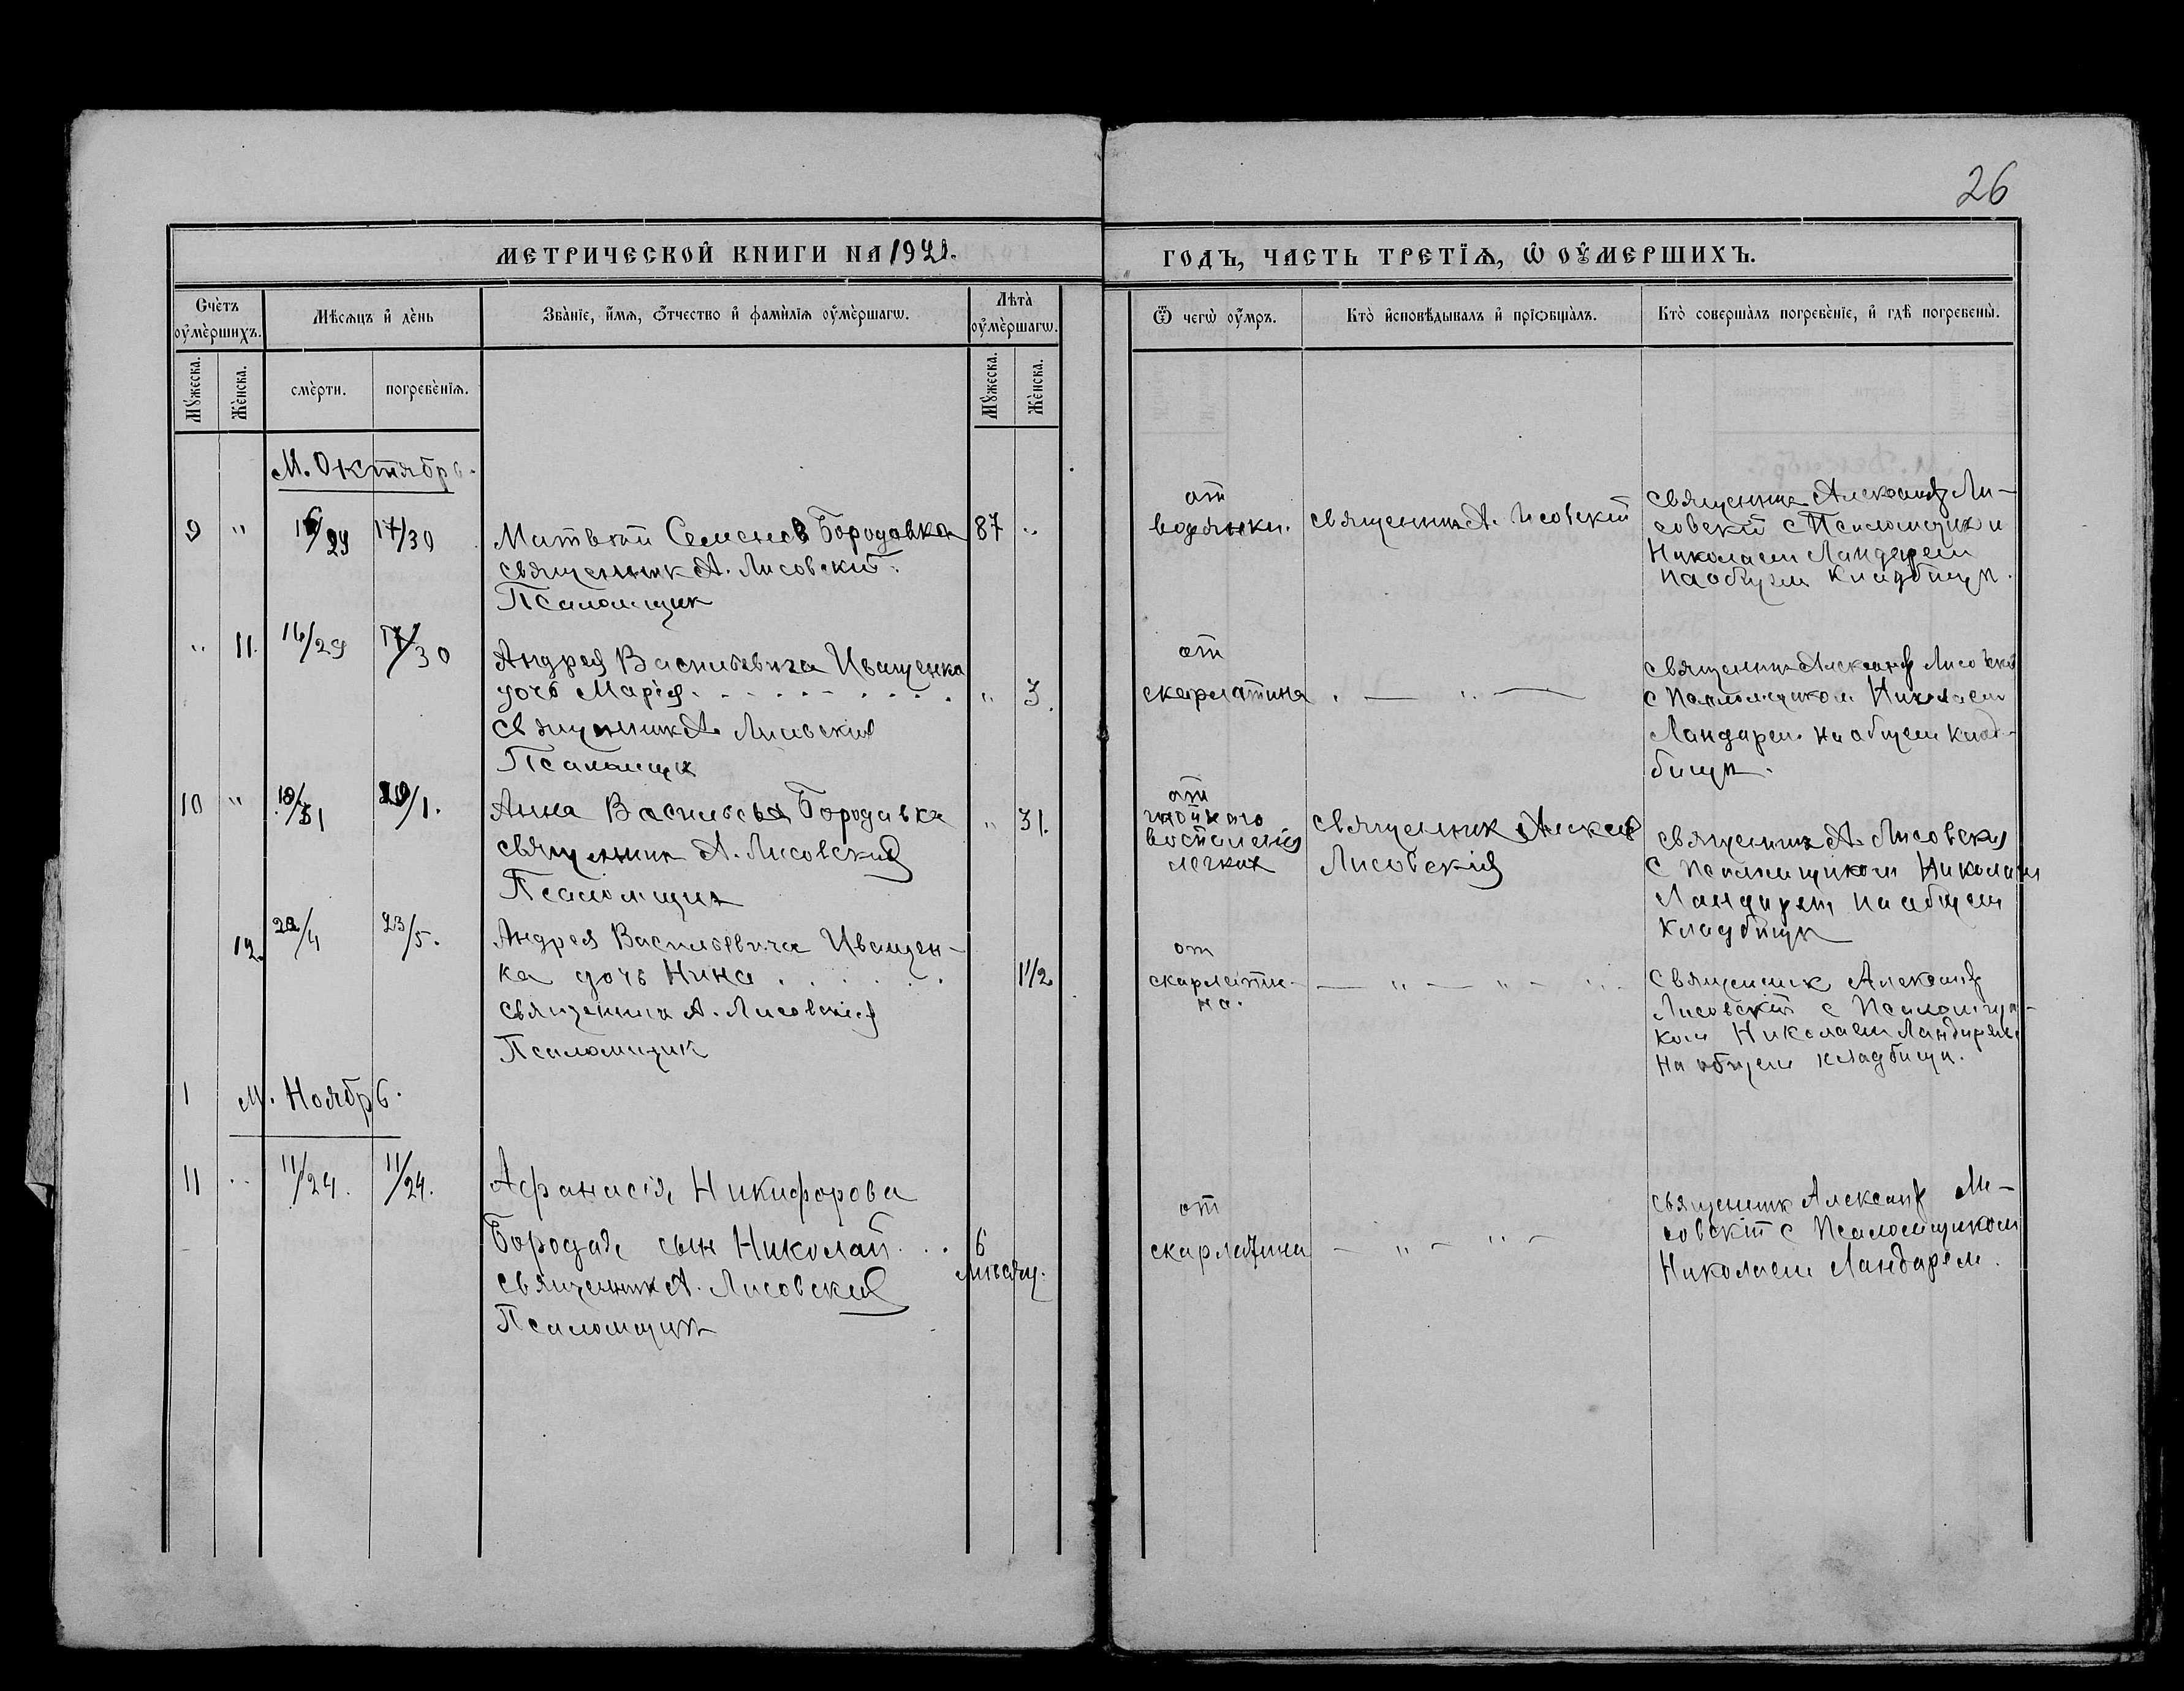 26
МЕТРИЧЕСКОЙ КНИГИ НА 1921.
ГОДЪ, ЧАСТЬ ТРЕТЇѦ, Ѡ ОУМЕРШИХЪ.
Счетъ оумершихъ.
Мѣсѧцъ и день
Званїе, имѧ, отчество и фамилїѧ оумершагѡ.
Лѣта оумершагѡ.
Ѿ чегѡ оумръ.
Кто исповѣдывалъ и прїобщалъ.
Кто совершалъ погребенїе, и гдѣ погребены.
Мужеска.
Женска.
смерти.
погребенїѧ.
Мужеска.
Женска.
М. Октябрь.
9 " 16/29 17/30
Матвѣй Семенов Бородавка 87 "
священник А. Лисовскій.
Псаломщик
от
водянки.
священник А. Лисовскій
священник Александр Ли-
совскій с Псаломщиком
Николаем Ландарем
на общем кладбищѣ.
" 11. 16/29 17/30
Андрея Васильевича Иващенка
дочь Марія " 3.
священник А. Лисовскій
Псаломщик
от
скарлатина
" — " —
священник Александр Лисовскій
с Псаломщиком Николаем
Ландарем на общем клад-
бищѣ.
10 " 18/31 19/1.
Анна Васильева Бородавка " 31.
священник А. Лисовскій
Псаломщик
от
гнойнаго
воспаленія
легких
священник Александр
Лисовскій
священник А. Лисовскій
с Псаломщиком Николаем
Ландарем на общем
кладбищѣ
12. 22/4 23/5.
Андрея Васильевича Иващен-
ка дочь Нина 1 1/2
священник А. Лисовскій
Псаломщик
от
скарлати-
на.
— " — " — "
священник Александр
Лисовскій с Псаломщи-
ком Николаем Ландарем
на общем кладбищѣ.
1 М. Ноябрь.
11 " 11/24. 11/24.
Афанасія Никифорова
Бородая сын Николай 6
мѣсяц.
священник А. Лисовскій
Псаломщик
от
скарлатина
— " — " —
священник Александр Ли-
совскій с Псаломщиком
Николаем Ландарем.